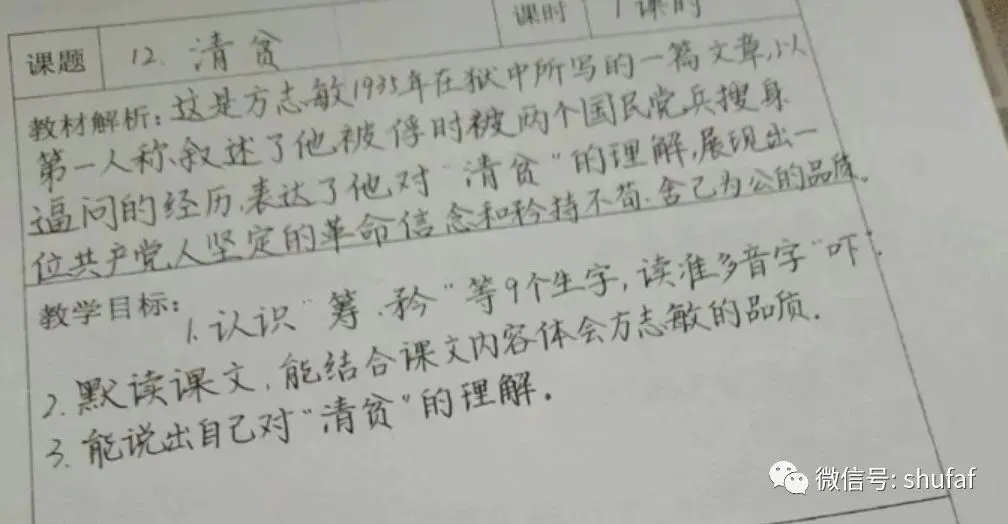 课题 12. 清贫 课时 1课时
教材解析: 这是方志敏1935年在狱中所写的一篇文章,以
第一人称、叙述了他被俘时被两个国民党兵搜身
逼问的经历,表达了他对“清贫”的理解,展现出一
位共产党人坚定的革命信念和矜持不苟、舍己为公的品质。
教学目标:
1.认识“筹、矜”等9个生字,读准多音字“吓”.
2.默读课文,能结合课文内容体会方志敏的品质.
3.能说出自己对“清贫”的理解.
微信号: shufaf